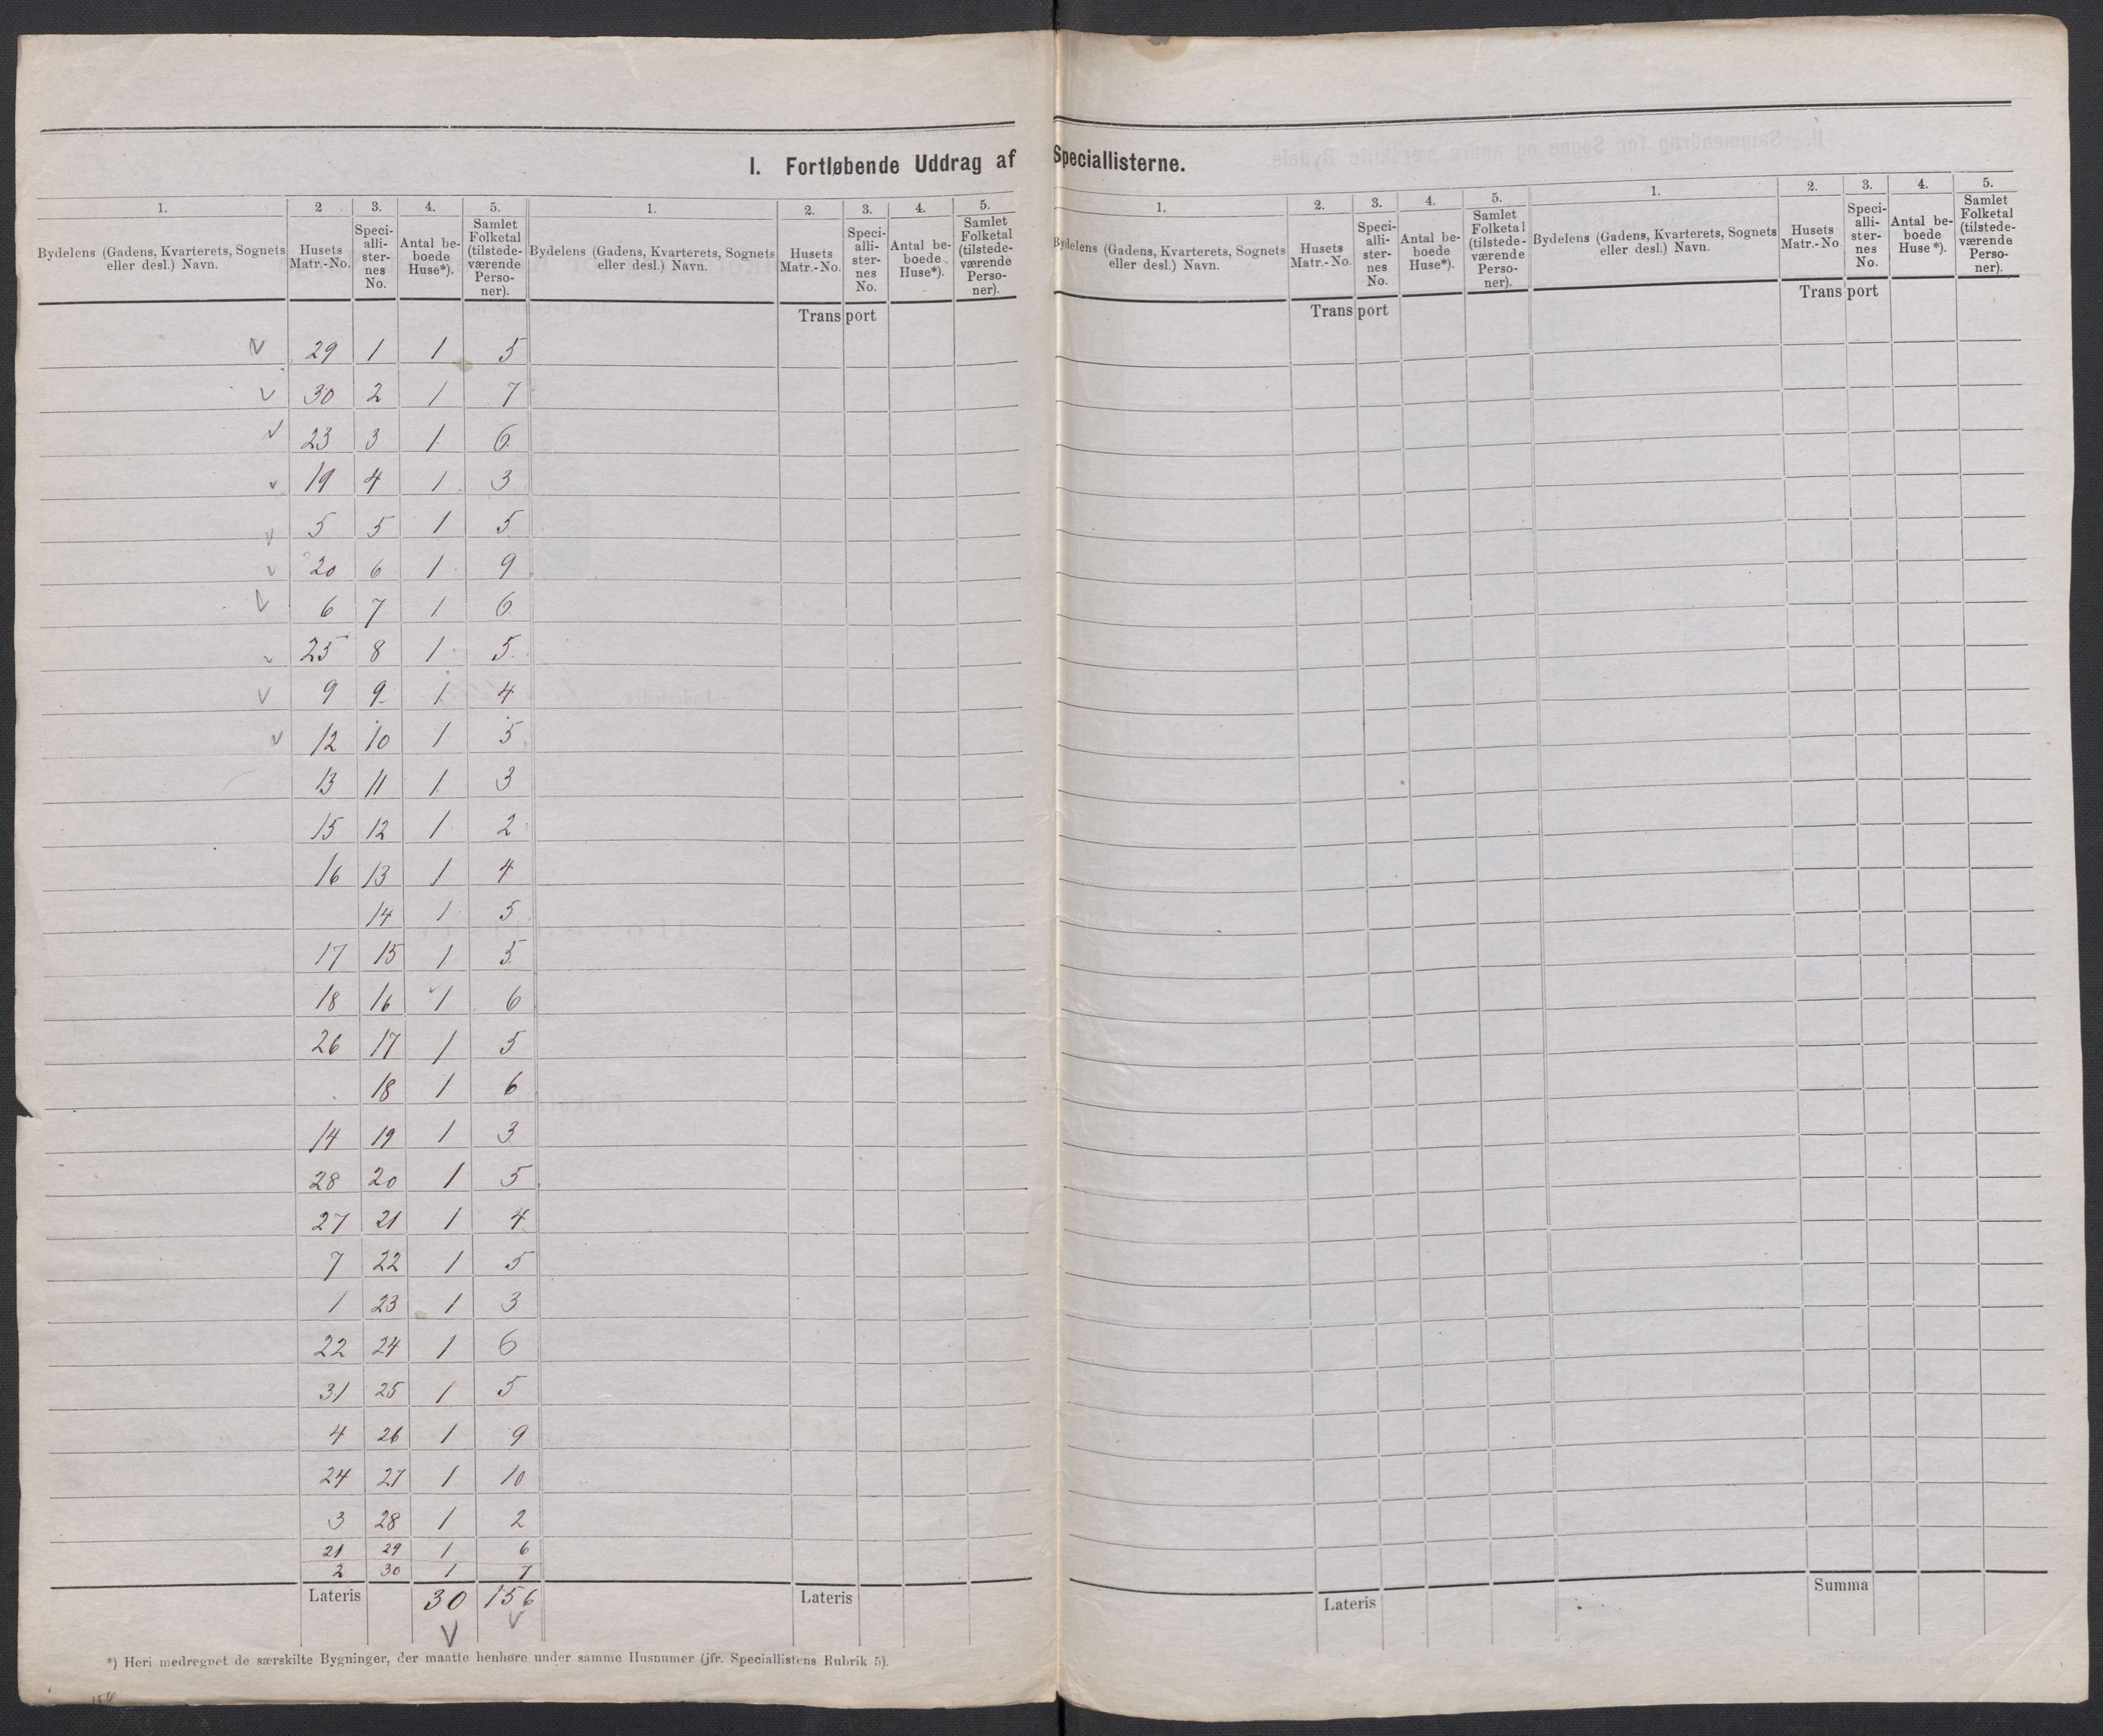 I. Fortløbende Uddrag af Speciallisterne.
1. 2 3. 4. 5. 1. 2. 3. 4. 5. 1. 2. 3. 4. 5. 1. 2. 3. 4. 5.
Bydelens (Gadens, Kvarterets, Sognets eller desl.) Navn. Husets Matr.-No. Speci-alli-ster-nes No. Antal be-boede Huse*). Samlet Folketal (tilstede-værende Perso-ner).
Bydelens (Gadens, Kvarterets, Sognets eller desl.) Navn. Husets Matr.-No. Speci-alli-ster-nes No. Antal be-boede Huse*). Samlet Folketal (tilstede-værende Perso-ner).
Bydelens (Gadens, Kvarterets, Sognets eller desl.) Navn. Husets Matr.-No. Speci-alli-ster-nes No. Antal be-boede Huse*). Samlet Folketal (tilstede-værende Perso-ner).
Bydelens (Gadens, Kvarterets, Sognets eller desl.) Navn. Husets Matr.-No Speci-alli-ster-nes No. Antal be-boede Huse*). Samlet Folketal (tilstede-værende Perso-ner).
Transport Transport Transport
29 1 1 5
30 2 1 7
23 3 1 6
19 4 1 3
5 5 1 5
20 6 1 9
6 7 1 6
25 8 1 5
9 9 1 4
12 10 1 5
13 11 1 3
15 12 1 2
16 13 1 4
14 1 5
17 15 1 5
18 16 1 6
26 17 1 5
18 1 6
14 19 1 3
28 20 1 5
27 21 1 4
7 22 1 5
1 23 1 3
22 24 1 6
31 25 1 5
4 26 1 9
24 27 1 10
3 28 1 2
21 29 1 6
2 30 1 7
Lateris 30 156 Lateris Lateris Summa
*) Heri medregnet de særskilte Bygninger, der maatte henhøre under samme Husnumer (jfr. Speciallistens Rubrik 5).
156